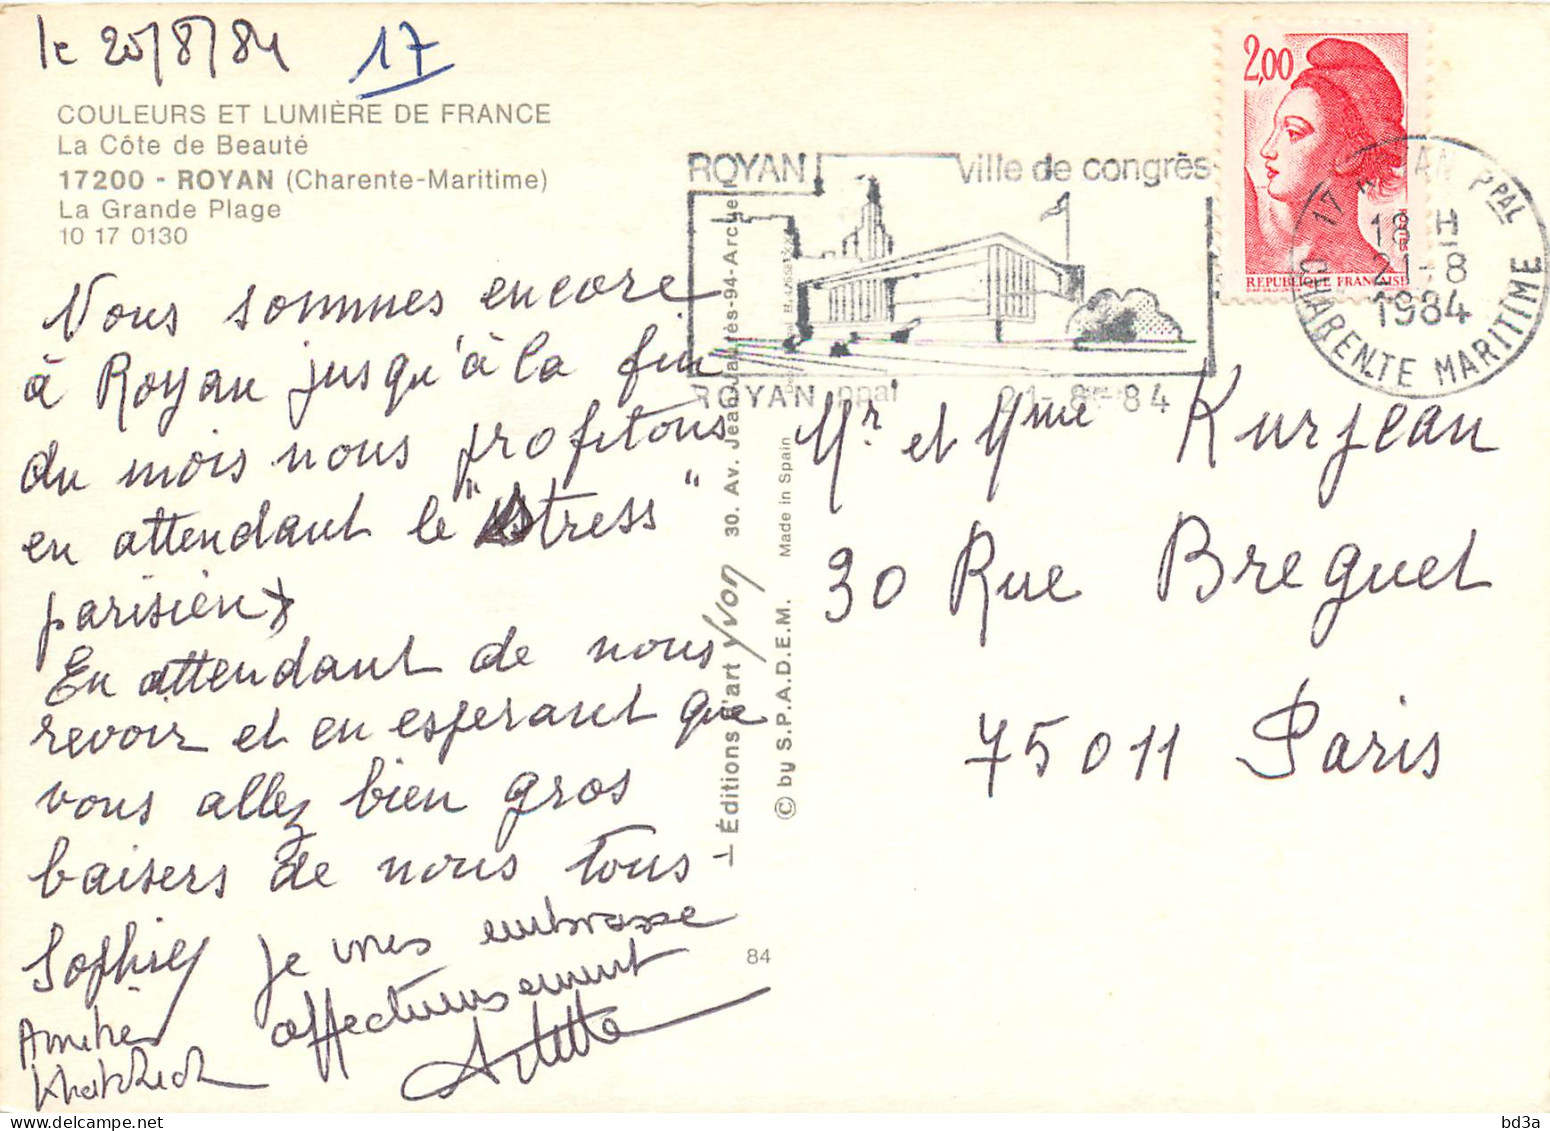 le 20/8/84 17
COULEURS ET LUMIÈRE DE FRANCE
La Côte de Beauté
17200 - ROYAN (Charente-Maritime)
La Grande Plage
10 17 0130
Nous sommes encore
à Royan jusqu'à la fin
du mois nous profitons
en attendant le "stress"
parisien
En attendant de nous
revoir et en esperant que
vous allez bien gros
baisers de nous tous
Sophie
je vous embrasse
affectueusement
Arlette
ROYAN ville de congrès
ROYAN ppal 21-8-84
2,00
REPUBLIQUE FRANÇAISE
17 ROYAN PPAL
18 H
21-8
1984
CHARENTE MARITIME
Mr et Mme Kurjean
30 Rue Breguet
75011 Paris
Éditions d'art Yvon 30. Av. Jean-Jaurès-94-Arcueil
© by S.P.A.D.E.M. Made in Spain
84
bd3a